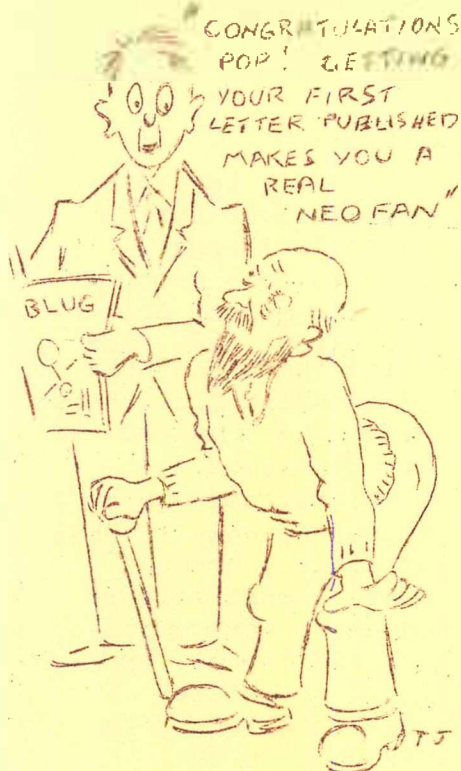 "CONGRATULATIONS
POP! GETTING
YOUR FIRST
LETTER PUBLISHED
MAKES YOU A
REAL
NEO FAN"
BLUG
TJ